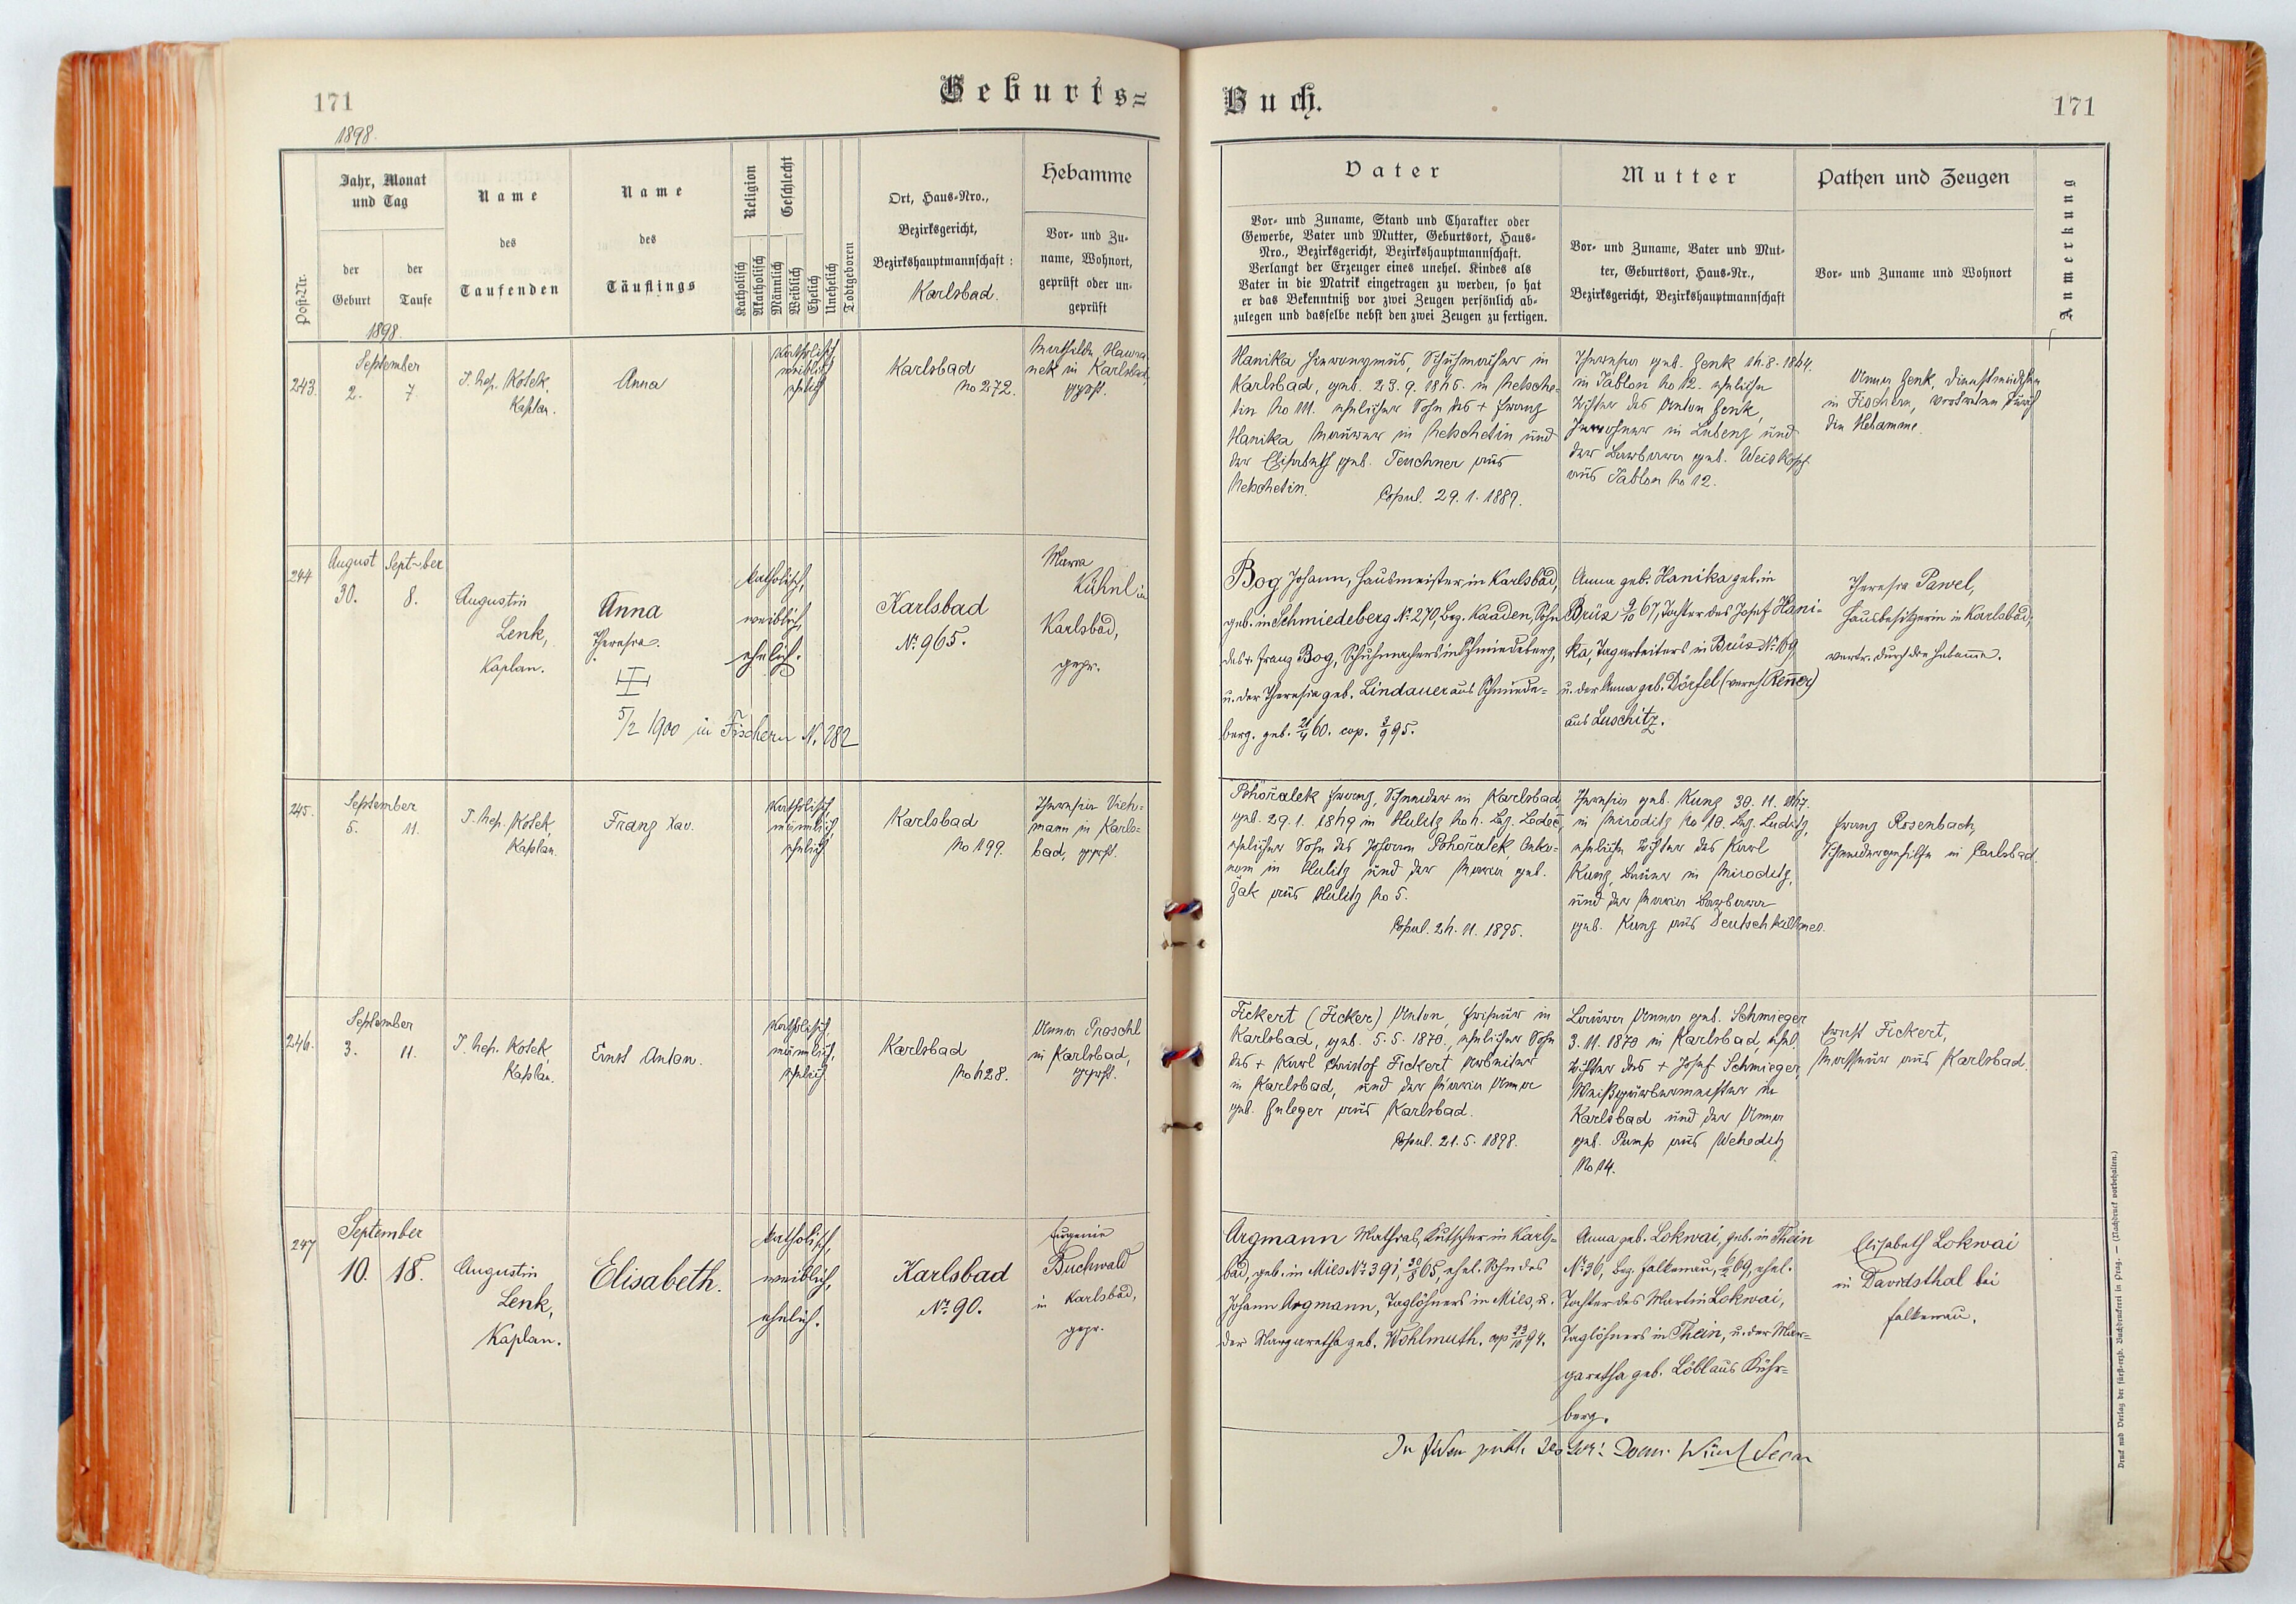 171
Geburts=
1898.
Post-Nr.
Jahr, Monat
und Tag
der
Geburt
der
Taufe
1898.
Name
des
Taufenden
Name
des
Täuflings
Religion
Katholisch
Akatholisch
Geschlecht
Männlich
Weiblich
Ehelich
Unehelich
Todtgeboren
Ort, Haus-Nro.,
Bezirksgericht,
Bezirkshauptmannschaft:
Karlsbad.
Hebamme
Vor- und Zu-
name, Wohnort,
geprüft oder un-
geprüft
243.
September
2. 7.
J. Nep. Kosek,
Kaplan.
Anna
Katholisch,
weiblich
ehelich
Karlsbad
No 272.
Mathilde Hawra-
nek in Karlsbad,
gepr.
244
August Sept-ber
30. 8.
Augustin
Lenk,
Kaplan.
Anna
Theresia.
5/2 1900 in Fischern N. 282
katholisch,
weiblich,
ehelich.
Karlsbad
No 965.
Maria
Kühnl in
Karlsbad,
gepr.
245.
September
5. 11.
J. Nep. Kosek,
Kaplan.
Franz Xav.
Katholisch,
männlich,
ehelich
Karlsbad
No 199.
Theresia Vieh-
mann in Karls-
bad, geprft.
246.
September
3. 11.
J. Nep. Kosek,
Kaplan.
Ernst Anton.
Katholisch,
männlich,
ehelich
Karlsbad
No 428.
Anna Proschl
in Karlsbad,
geprft.
247
September
10. 18.
Augustin
Lenk,
Kaplan.
Elisabeth.
katholisch,
weiblich,
ehelich.
Karlsbad
No 90.
Eugenie
Buchwald
in Karlsbad,
gepr.
Buch.
171
Vater
Vor- und Zuname, Stand und Charakter oder
Gewerbe, Vater und Mutter, Geburtsort, Haus-
Nro., Bezirksgericht, Bezirkshauptmannschaft.
Verlangt der Erzeuger eines unehel. Kindes als
Vater in die Matrik eingetragen zu werden, so hat
er das Bekenntniß vor zwei Zeugen persönlich ab-
zulegen und dasselbe nebst den zwei Zeugen zu fertigen.
Mutter
Vor- und Zuname, Vater und Mut-
ter, Geburtsort, Haus-Nr.,
Bezirksgericht, Bezirkshauptmannschaft
Pathen und Zeugen
Vor- und Zuname und Wohnort
Anmerkung
Hanika Hieronymus, Schuhmacher in
Karlsbad, geb. 23. 9. 1865. in Netsche-
tin No 111. ehelicher Sohn des + Franz
Hanika Maurer in Netschetin und
der Elisabeth geb. Teuchner aus
Netschetin.
Copul. 29. 1. 1889.
Theresia geb. Zenk 14. 8. 1864.
in Jablon No 12. eheliche
Tochter des Anton Zenk,
Inwohner in Lubenz und
der Barbara geb. Weiskopf
aus Jablon No 12.
Anna Zenk, Dienstmädchen
in Fischern, vertreten durch
die Hebamme.
Bog Johann, Hausmeister in Karlsbad,
geb. in Schmiedeberg No 270, Bez. Kaaden, Sohn
des + Franz Bog, Schuhmachers in Schmiedeberg,
u. der Theresia geb. Lindauer aus Schmiede-
berg. geb. 21/4 60. cop. 3/9 95.
Anna geb. Hanika geb. in
Brüx 9/10 67, Tochter des Josef Hani-
ka, Tagarbeiters in Brüx No 169
u. der Anna geb. Dörfel (verehl. Renner)
aus Luschitz.
Theresia Pawel,
Hausbesitzerin in Karlsbad,
vertr. durch die Hebamme.
Pohořalek Franz, Schneider in Karlsbad,
geb. 29. 1. 1869 in Hulitz No 4. Bez. Ledeč,
ehelicher Sohn des Johann Pohořalek, Oeko-
nom in Hulitz und der Maria geb.
Žak aus Hulitz No 5.
Copul. 24. 11. 1895.
Theresia geb. Kunz 30. 11. 1867.
in Miroditz No 10. Bez. Luditz,
eheliche Tochter des Karl
Kunz, Bauer in Miroditz,
und der Maria Barbara
geb. Kunz aus Deutschkillmes.
Franz Rosenbach,
Schneidergehilfe in Karlsbad.
Fickert (Ficker) Anton, Friseur in
Karlsbad, geb. 5. 5. 1870., ehelicher Sohn
des + Karl Christof Fickert Arbeiter
in Karlsbad, und der Maria Anna
geb. Zuleger aus Karlsbad.
Copul. 21. 5. 1898.
Laura Anna geb. Schmieger
3. 11. 1870 in Karlsbad, ehel.
Tochter des + Josef Schmieger,
Weißgärbermeister in
Karlsbad und der Anna
geb. Pump aus Weheditz
No 14.
Ernst Fickert,
Masseur aus Karlsbad.
Argmann Mathias, Kutscher in Karls-
bad, geb. in Mies No 391, 65, ehel. Sohn des
Johann Argmann, Taglöhners in Mies, u.
der Margaretha geb. Wohlmuth. cop 94.
Anna geb. Lokwai, geb. in Thein
No 36, Bez. Falkenau, 69, ehel.
Tochter des Martin Lokwai,
Taglöhners in Thein, u. der Mar-
garetha geb. Löbl aus Kühr-
berg.
Elisabeth Lokwai
in Davidsthal bei
Falkenau.
Druck und Verlag der fürst-erzb. Buchdruckerei in Prag. — (Nachdruck vorbehalten.)